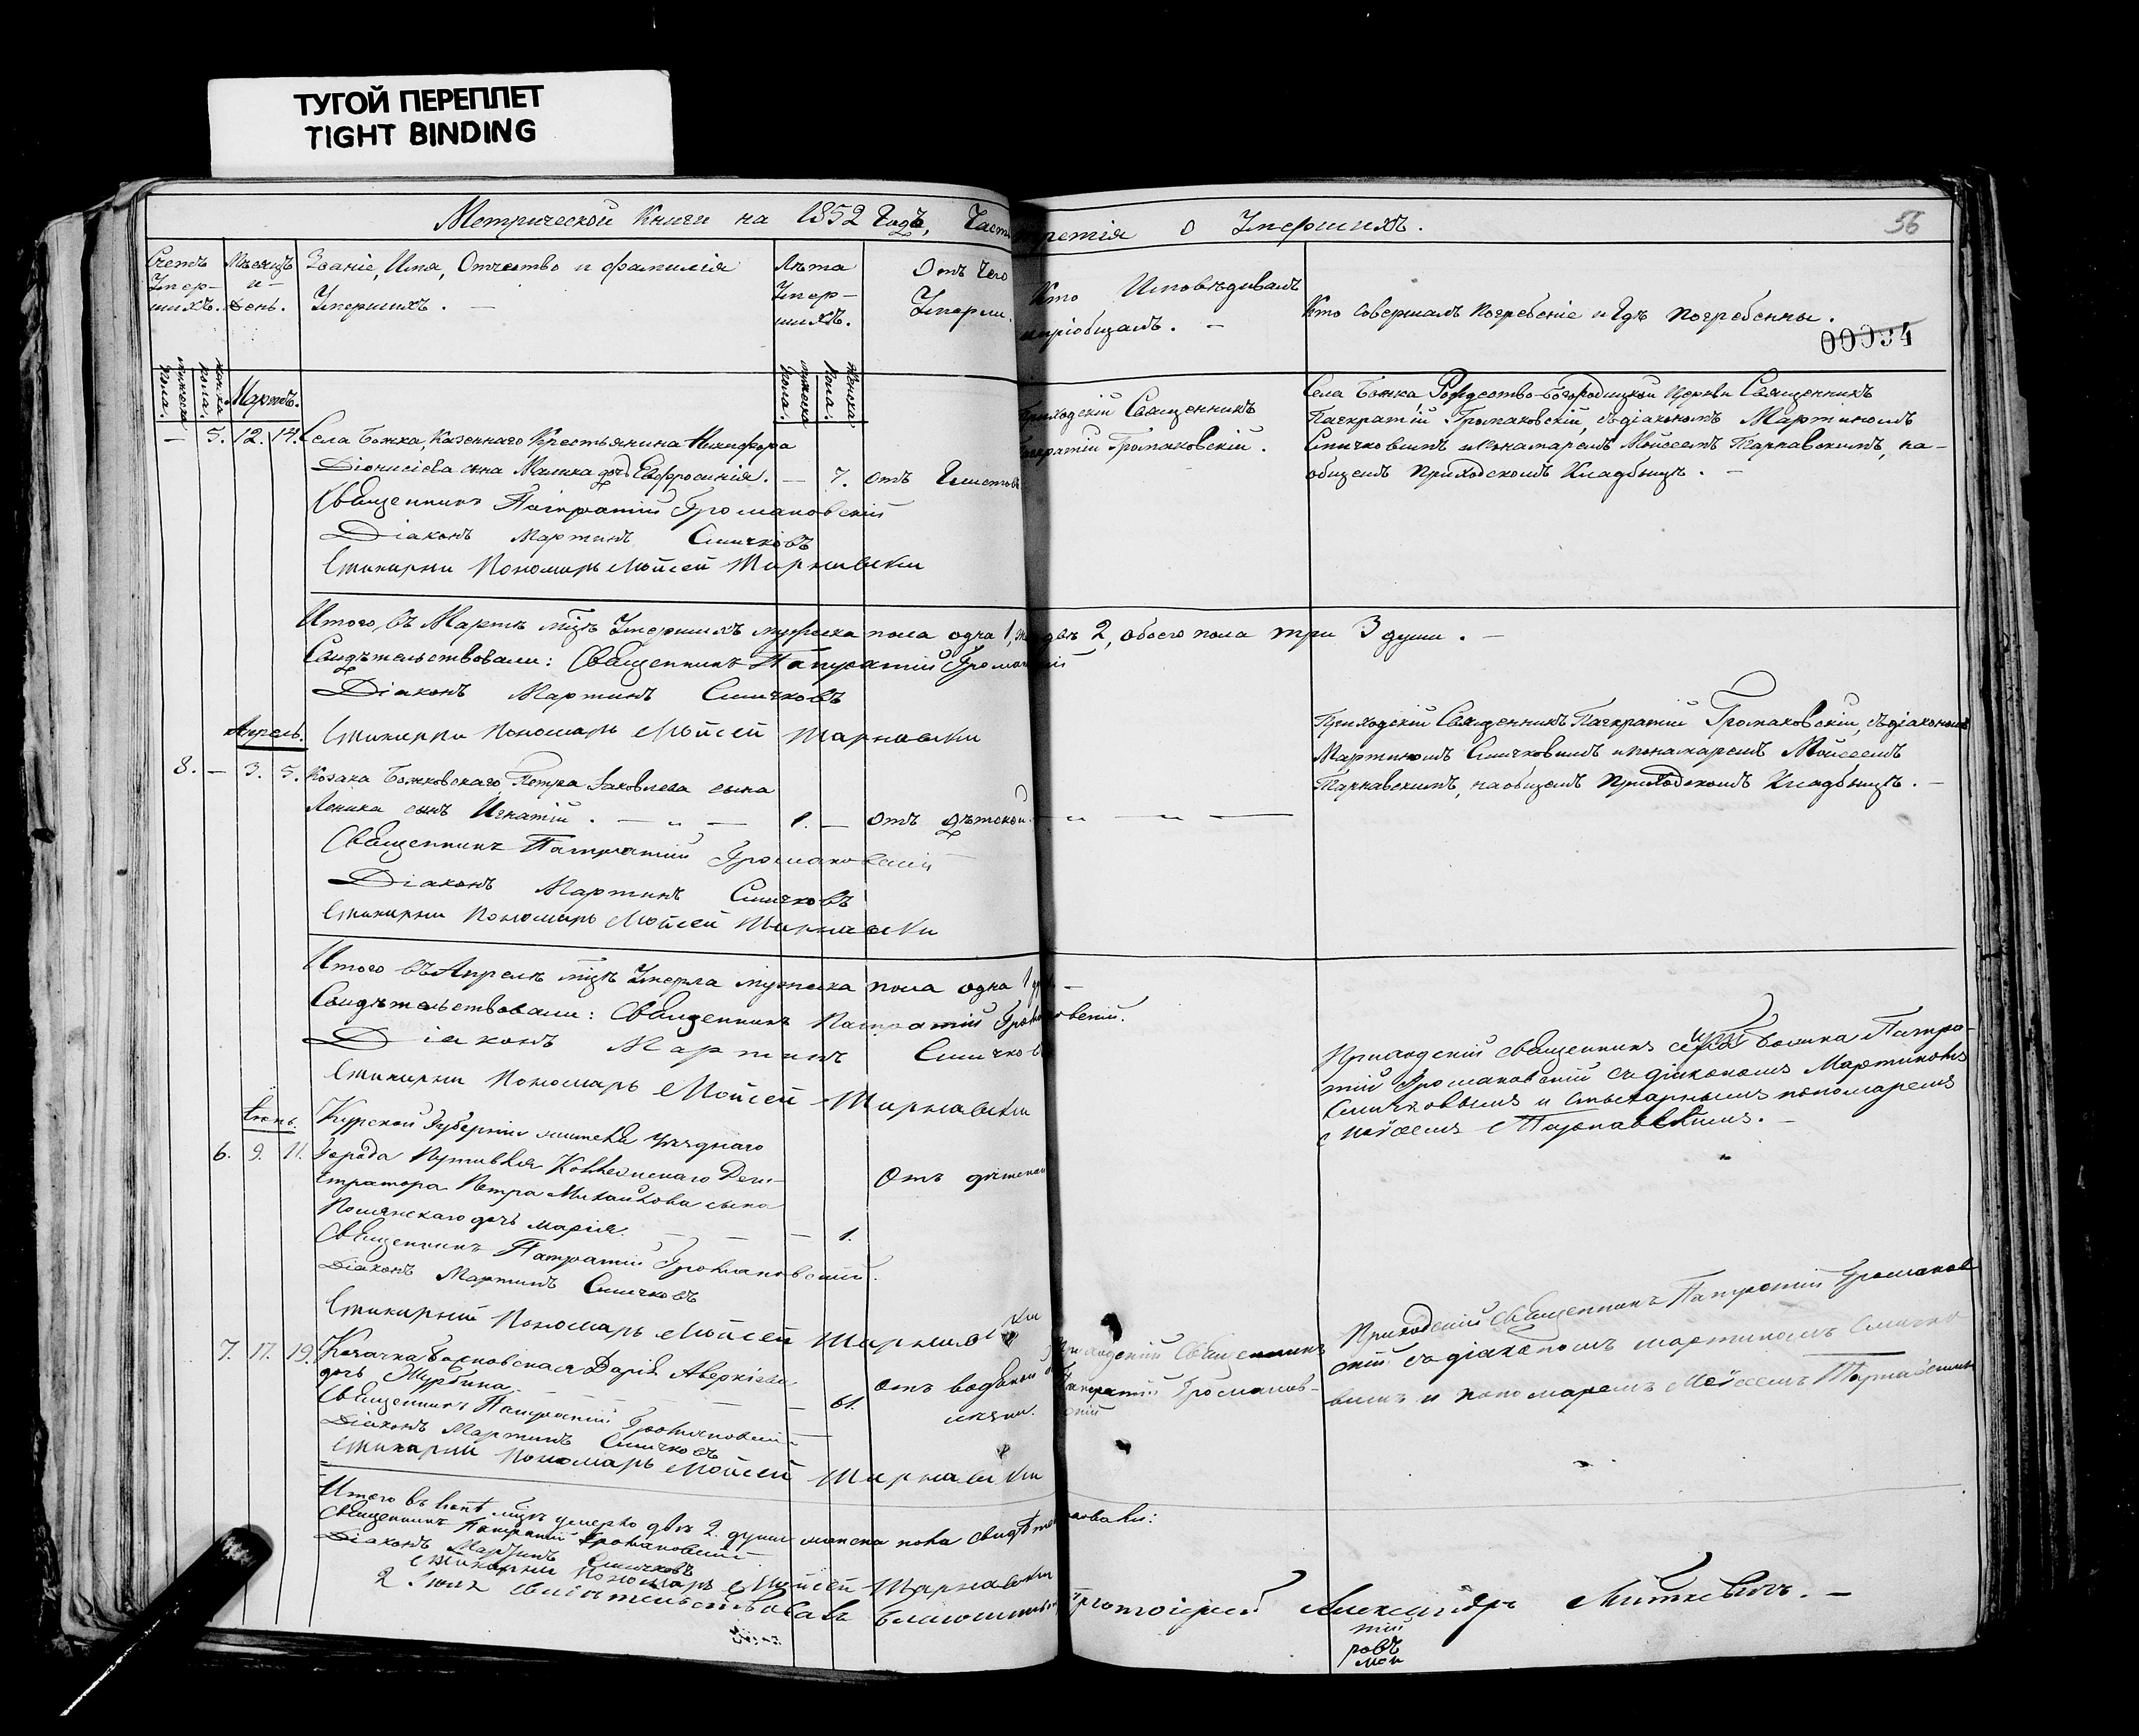 ТУГОЙ ПЕРЕПЛЕТ
TIGHT BINDING
Метрической Книги на 1852 Годъ, Часть третія о Умершихъ.
56
Счетъ Умер-шихъ.
Мѣсяцъ и день.
Званіе, Имя, Отчество и фамилія Умершихъ. —
Лѣта Умер-шихъ.
Отъ чего Умерли.
Кто Исповѣдывалъ и пріобщалъ. —
Кто совершалъ погребеніе и гдѣ погребенны.
00034
мужеска пола.
женска пола.
мужеска пола.
женска пола.
Мартъ.
— 5. 12. 14. Села Божка, Казеннаго Крестьянина Никифора
Діонисіева сына дочь Евфросинія. — 7. отъ
Приходскій Священникъ
Панкратій Громаковскій.
Села Божка, Рождество-Богородицкой Церкви Священникъ
Панкратій Громаковскій, съ діакономъ Мартиномъ
Симчковымъ и понамаремъ Мойсеемъ Тарнавскимъ, на-
общемъ приходскомъ кладбищѣ. —
Священникъ Панкратій Громаковскій
Діаконъ Мартинъ Симчковъ
Пономарь Мойсей Тарнавски
Итого, въ Мартѣ мцѣ Умершихъ мужеска пола одна 1, двѣ 2, обоего пола три 3 души. —
Свидѣтельствовали: Священникъ Панкратій
Діаконъ Мартинъ Симчковъ
Пономарь Мойсей Тарнавски
Апрель.
3. — 3. 5. Козака Божковскаго, Петра Яковлева сына
сынъ Игнатій. — „ — 1. — отъ дѣтской
Приходскій Священникъ Панкратій Громаковскій, съ діакономъ
Мартиномъ Симчковымъ и понамаремъ Мойсеемъ
Тарнавскимъ, на общемъ приходскомъ кладбищѣ. —
Священникъ Панкратій Громаковскій
Діаконъ Мартинъ Симчковъ
Пономарь Мойсей Тарнавски
Итого въ Апрелѣ мцѣ Умерла мужеска пола одна 1
Свидѣтельствовали: Священникъ Панкратій Громаковскій.
Діаконъ Мартинъ Симчковъ
Пономарь Мойсей Тарнавски
Іюнь.
Курской Губерніи
6. 9. 11. Города Путивля Коллежскаго Реги-
стратора Петра Михайлова сына
дочь Марія. — — — 1.
Отъ дѣтской
Приходскій священникъ села Божка Панкра-
тій Громаковскій съ діакономъ Мартиномъ
Симчковымъ и пономаремъ
Мойсеемъ Тарнавскимъ. —
Священникъ Панкратій Громаковскій.
Діаконъ Мартинъ Симчковъ
Пономарь Мойсей
7. 17. 19. Козачка Божковская Дарія Аверкіева
дочь Журбина. — — — 61.
отъ водяной
Приходскій Священникъ
Панкратій Громаков-
скій
Приходскій Священникъ Панкратій Громаков
скій съ діакономъ Мартиномъ Симчко
вымъ и пономаремъ Мойсеемъ Тарнавскимъ
Священникъ Панкратій Громаковскій
Діаконъ Мартинъ Симчковъ
Пономарь Мойсей Тарнавски
Итого въ Іюнѣ мцѣ умерло двѣ 2. души женска пола
Священникъ Панкратій Громаковскій
Діаконъ Мартинъ Симчковъ
Пономарь Мойсей Тарнавски
2. Іюля свидѣтельствовалъ Благочинный Протоіерей Александръ